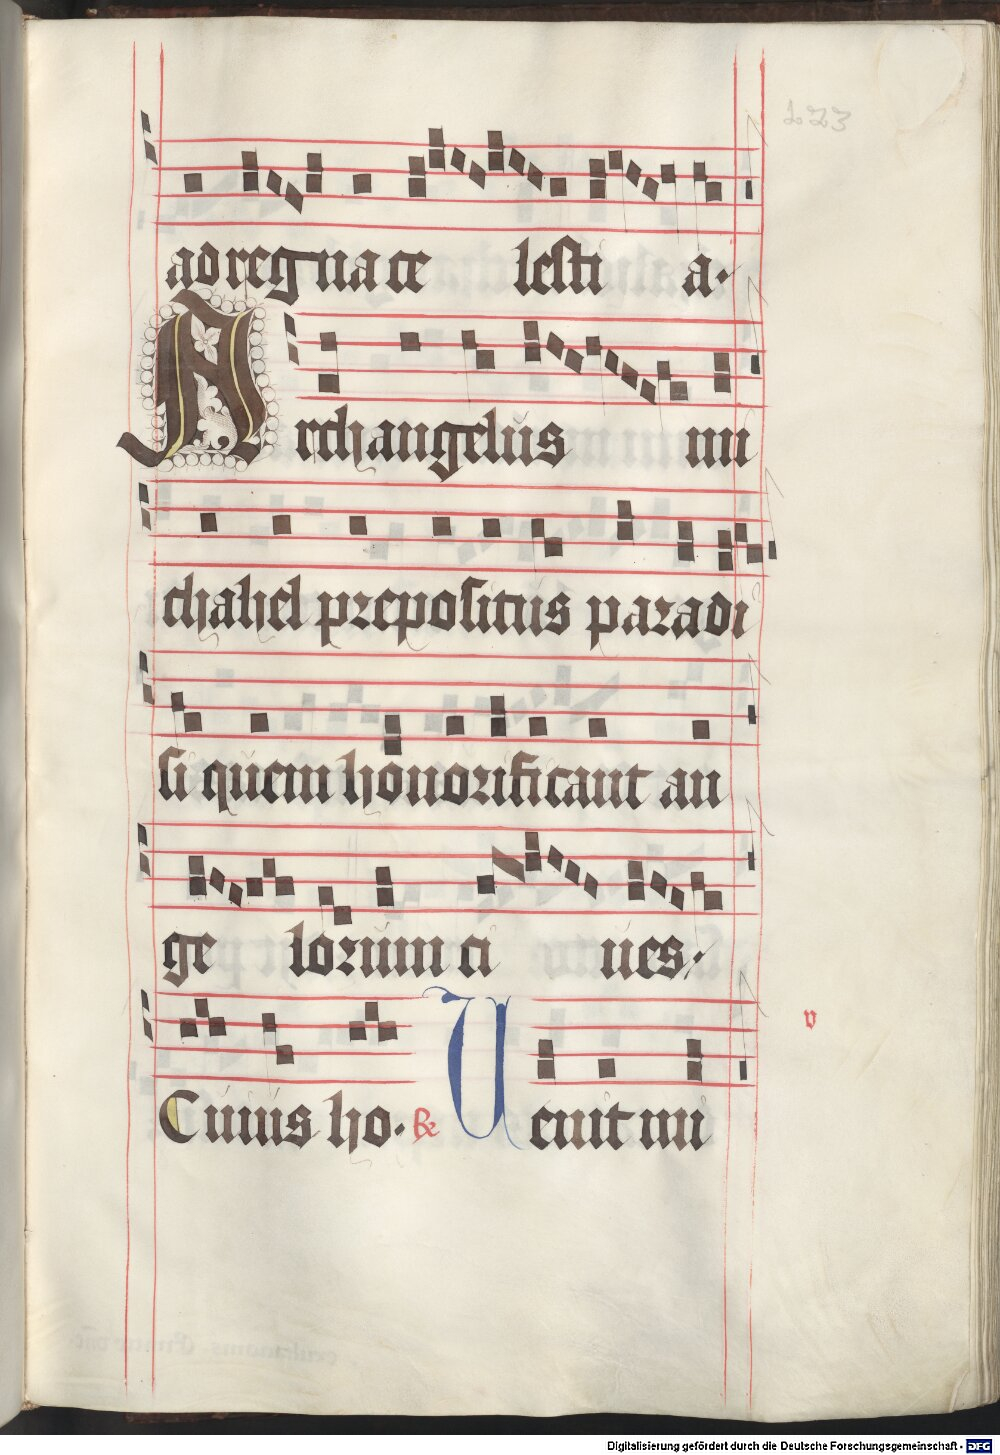 223
ad regna ce lesti a.
Archangelus mi
chahel prepositus paradi
si quem honorificant an
ge lorum ci ues.
v
Cuius ho. R Uenit mi
Digitalisierung gefördert durch die Deutsche Forschungsgemeinschaft - DFG